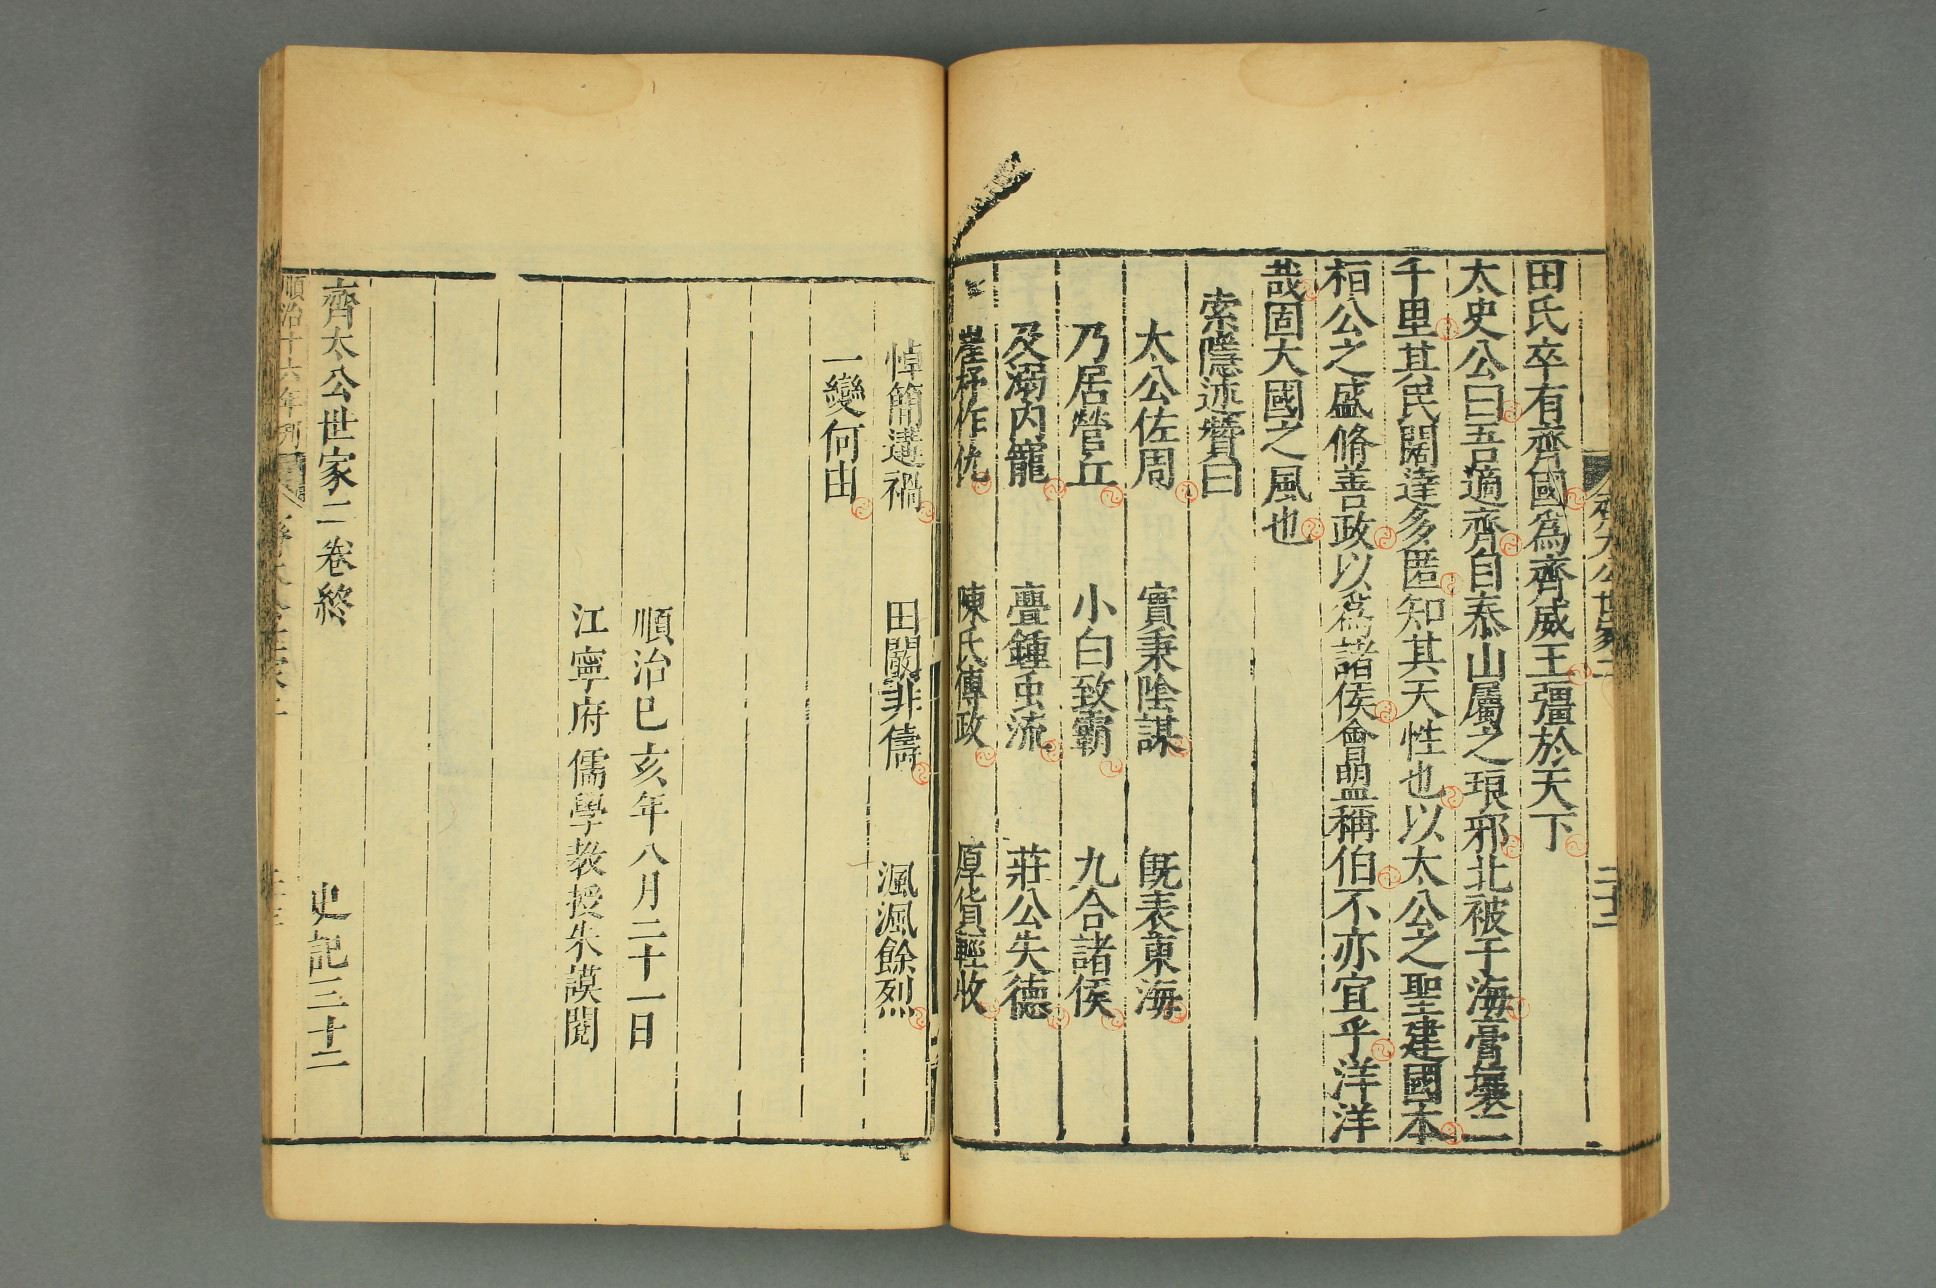 田氏卒有齊國爲齊威王彊於天下
太史公曰吾適齊自泰山屬之琅邪北被于海膏壤二
千里其民闊達多匿知其天性也以太公之聖建國本
桓公之盛脩善政以爲諸侯會盟稱伯不亦宜乎洋洋
哉固大國之風也
索隱述贊曰
太公佐周 實秉陰謀 旣表東海
乃居營丘 小白致霸 九合諸侯
及溺內寵 亹鍾虫流 莊公失德
崔杼作仇 陳氏傳政 厚貨輕收
悼簡遘禍 田闞非儔 渢渢餘烈
一變何由
順治已亥年八月二十一日
江寧府儒學教授朱謨閱
齊太公世家二卷終 史記三十二
順治十六年刊
齊太公世家二
二十二